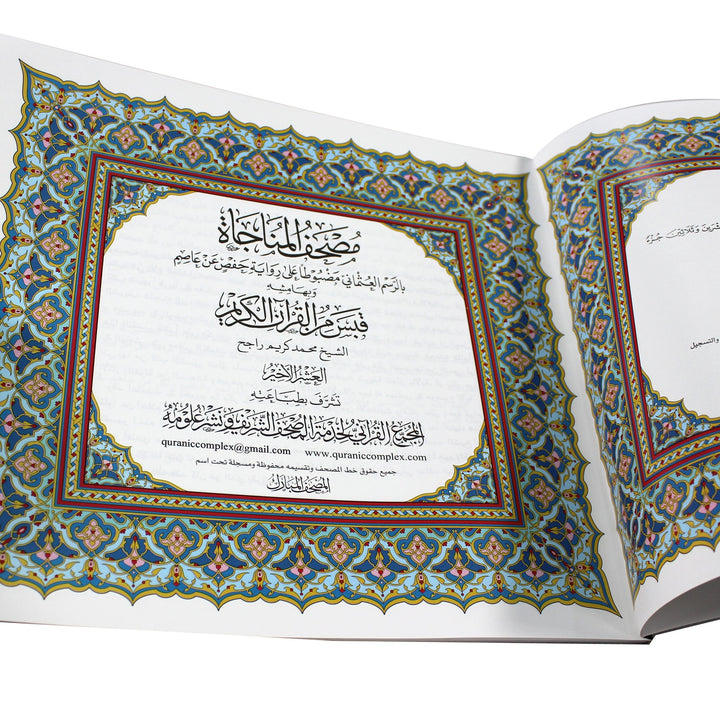 مصحف المناجاة
بالرسم العثماني مضبوطا على رواية حفص عن عاصم
وبهامشه
قبس من القرآن الكريم
الشيخ محمد كريم راجح
العشر الأخير
تشرف بطباعته
المجمع القرآني لخدمة المصحف الشريف ونشر علومه
quraniccomplex@gmail.com www.quraniccomplex.com
جميع حقوق خط المصحف وتقسيمه محفوظة ومسجلة تحت اسم
المصحف المبارك
وثلاثين جزء
والتسجيل